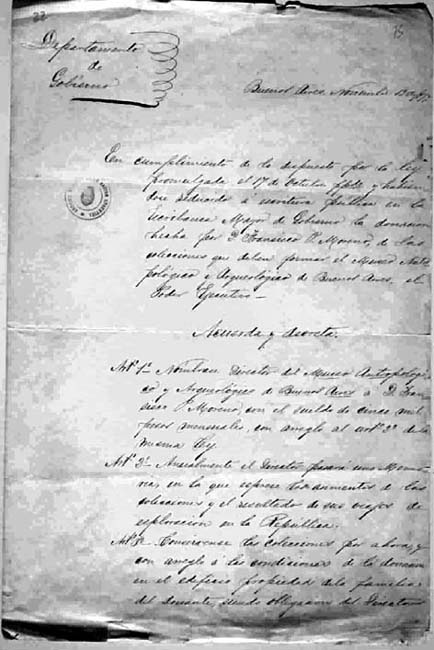 Departamento
de
Gobierno
Buenos Aires, Noviembre 13
En cumplimiento de lo dispuesto por la ley
promulgada el 17 de Octubre ppdo y habien
dose reducido a escritura publica en la
Escribania Mayor de Gobierno la donacion
hecha por D. Francisco P. Moreno, de las
colecciones que deben formar el Museo Antro
pológico y Arqueológico de Buenos Aires, el
Poder Ejecutivo—
Acuerda y decreta.
Art° 1° Nombrase Director del Museo Antropologi
co y Arqueológico de Buenos Aires á D. Fran
cisco P. Moreno, con el sueldo de cinco mil
pesos mensuales, con arreglo al art° 3° de la
misma ley.
Art° 2° Anualmente el Director pasará una Memo
ria, en la que esprese los aumentos de las
colecciones y el resultado de sus viajes de
esploracion en la República.
Art° 3° Conservense las colecciones por ahora, y
con arreglo á las condiciones de la donacion
en el edificio propiedad de la familia
del donante, siendo obligacion del Director